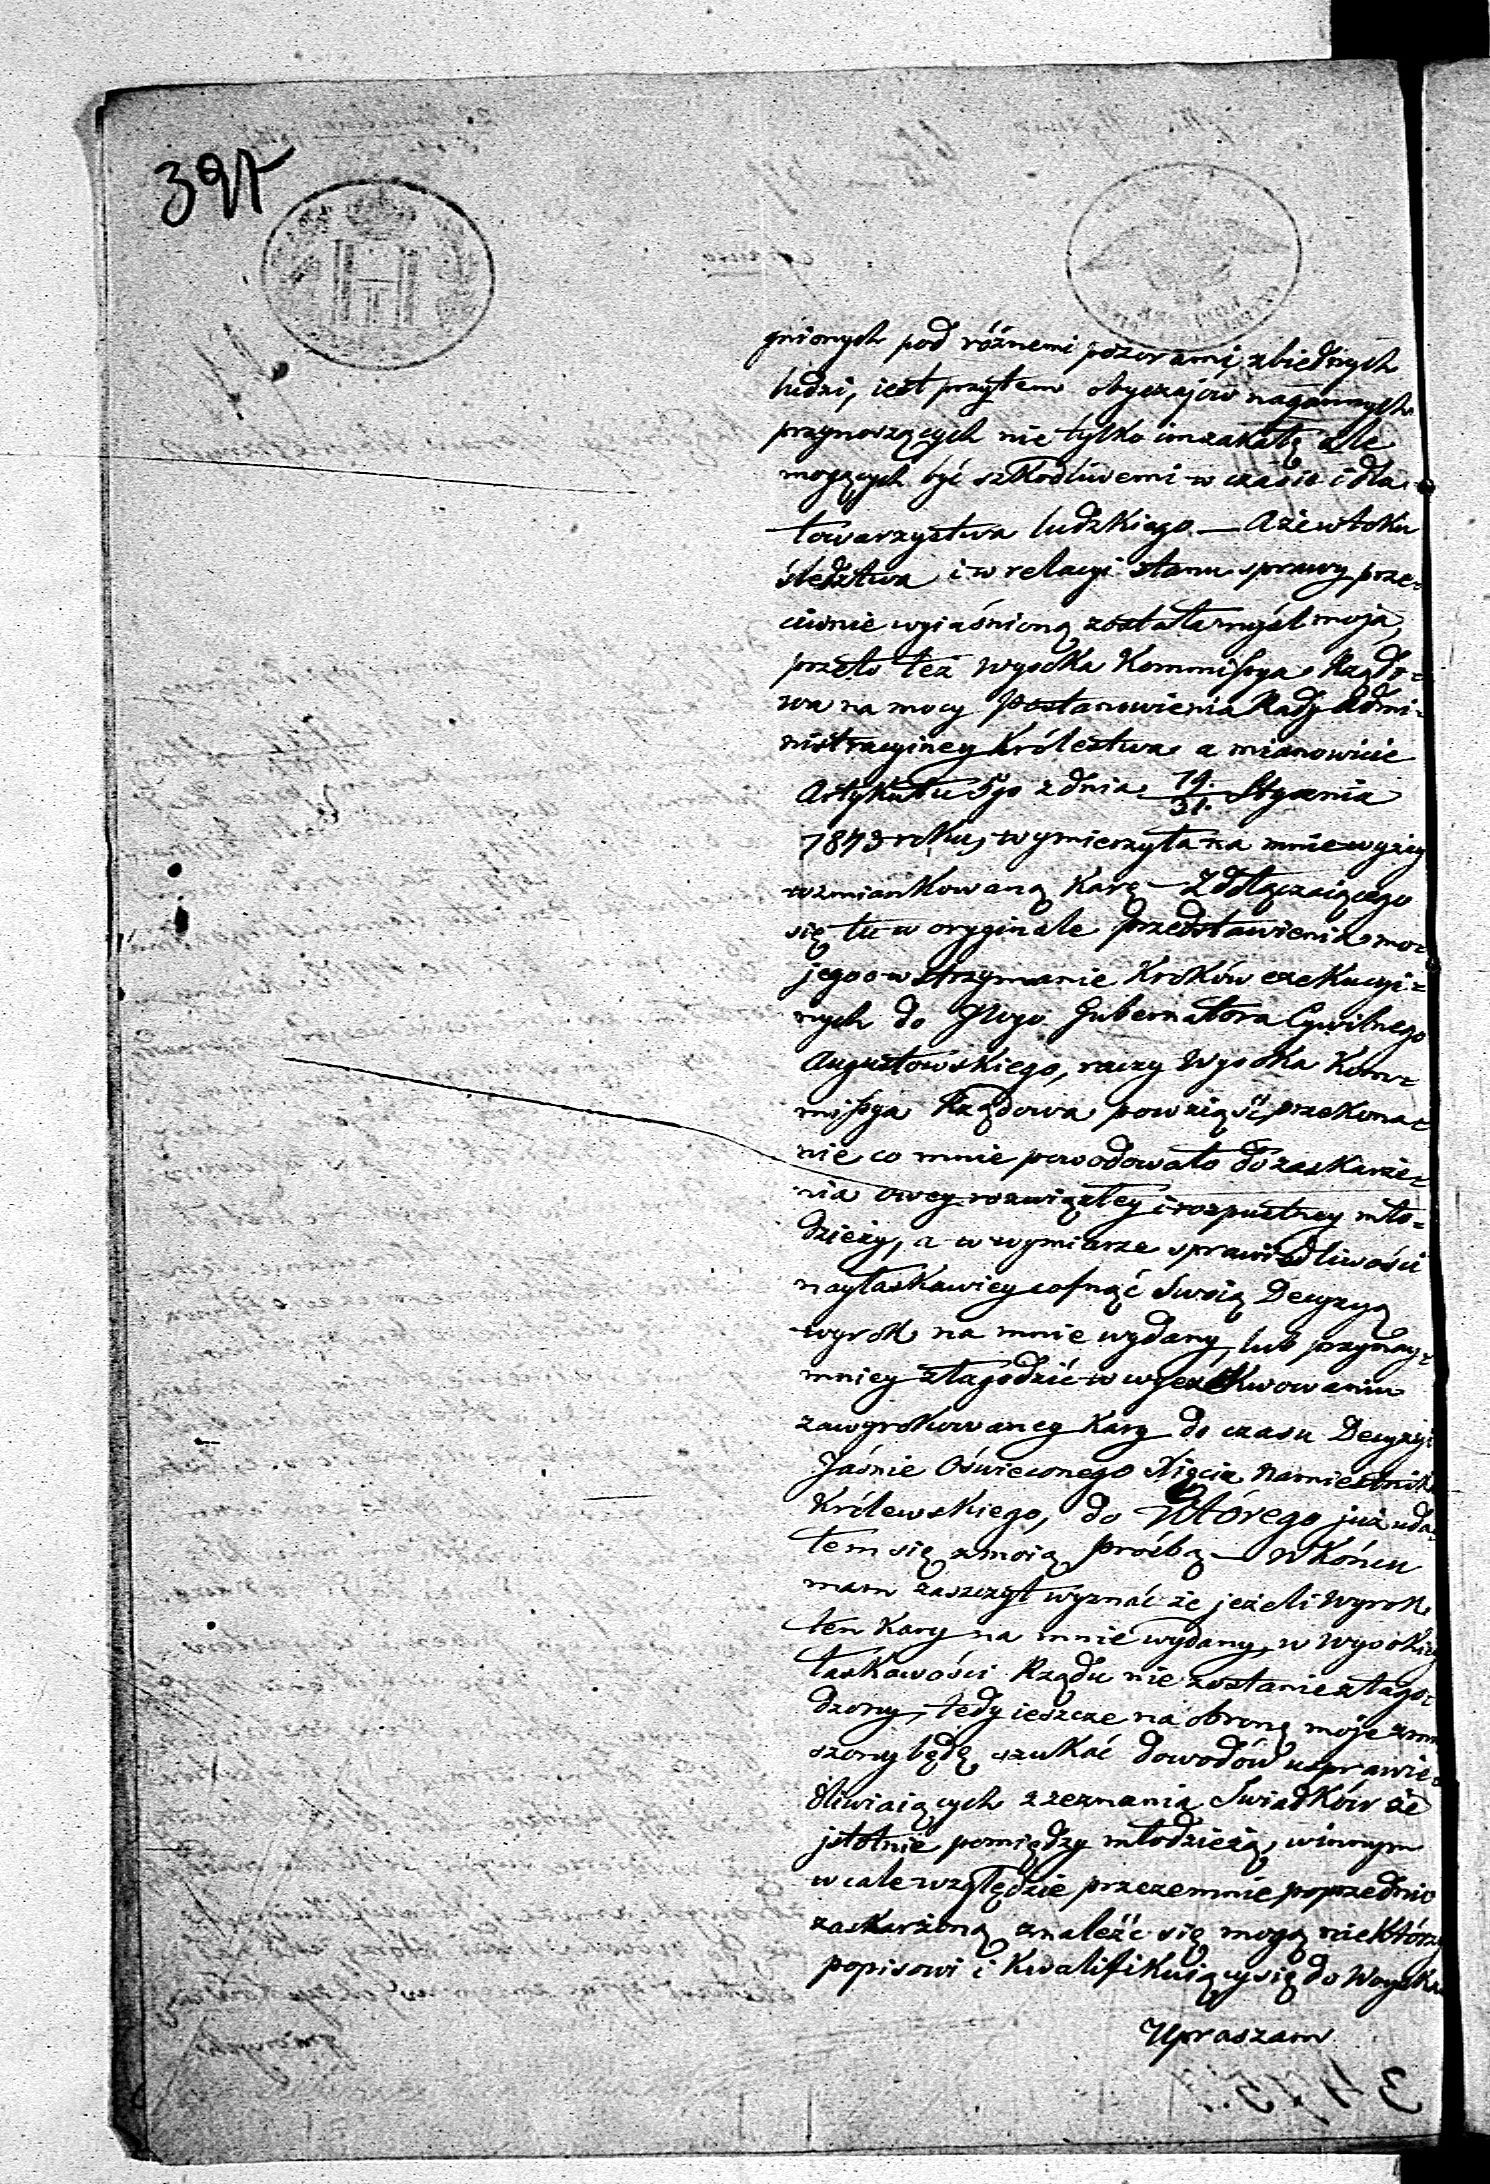 397
gnionych pod różnemi pozorami, z biednych
ludzi, iest przytem obyczajow nagannych
przynoszących nie tylko im zakałę ale
mogących być szkodliwemi w czasie i dla
towarzystwa ludzkiego — A że w toku
śledztwa i w relacyi stanu sprawy prze-
ciwnie wyiaśnioną została myśl moja,
przeto też Wysoka Kommissya Rządo-
wa na mocy Postanowienia Rady Admi-
nistracyiney Królestwa a mianowicie
Artykułu 5go z dnia 19/31 Stycznia
1843 roku, wymierzyła na mnie wyżey
wzmiankowaną Karę — Z dołączaiącego
się tu w oryginale przedstawienia mo-
jego o wstrzymanie Kroków exekucyi-
nych do JWgo Gubernatora Cywilnego
Augustowskiego, raczy Wysoka Kom-
missya Rządowa powziąść przekona-
nie co mnie powodowało do zaskarże-
nia owey rozwiązłey i rozpustney mło-
dzieży, a w wymiarze sprawiedliwości
nayłaskawiey cofnąć Swoią Decyzyą
wyrok na mnie wydany, lub przynay-
mniey złagodzić w wyexekwowaniu
zawyrokowaney Kary do czasu Decyzyi
Jaśnie Oświeconego Xięcia Namiestnika
Królewskiego, do Którego już uda-
łem się z moią proźbą — W Końcu
mam zaszczyt wyznać że jeżeli Wyrok
ten Kary na mnie wydany, w Wysokiey
łaskawości Rządu nie zostanie złago-
dzony, tedy ieszcze na obronę moje zmu
szony będę szukać dowodów usprawie-
dliwiaiących z zeznania Swiadków że
jstotnie pomiędzy młodzieżą, w innym
wcale względzie przezemnie poprzednio
zaskarżoną znaleźć się mogą niektórzy
popisowi i Kwalifikuiący się do Woyska
Upraszam